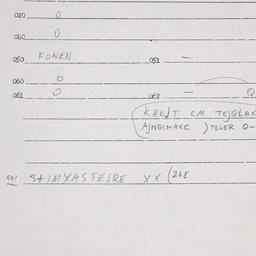 020 0
040 0
050 FONEN 051 —
060 0
061 0 062 — Q
KROJT CM TEJGLAX
AJNGIMAXC ) TELER Q-
S+IMXASTEJRE XX (268